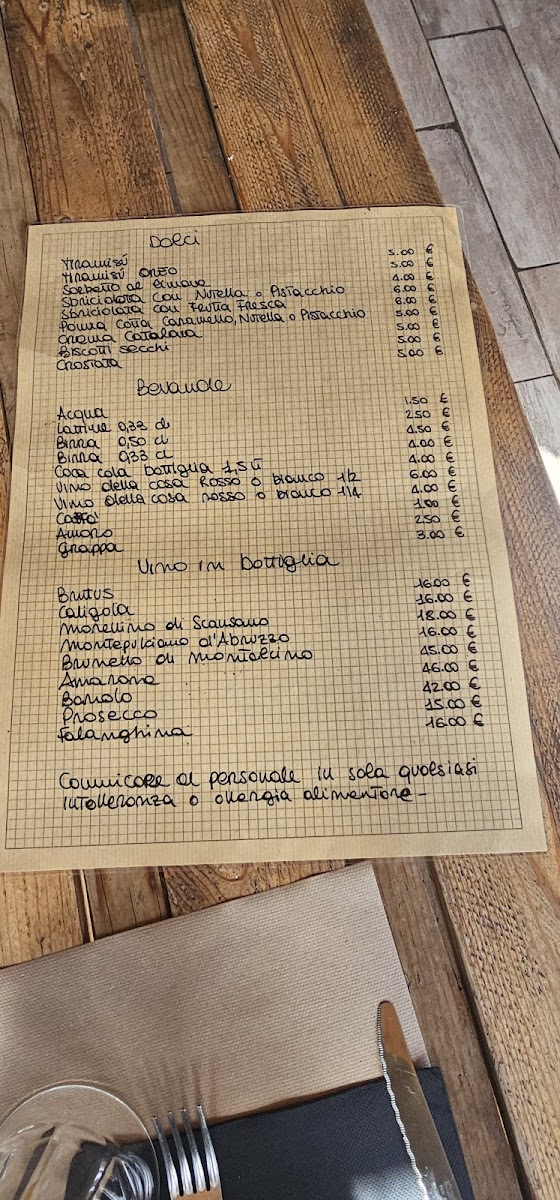 Dolci
Tiramisú 5.00 €
Tiramisú Oreo 5.00 €
Sorbetto al limone 4.00 €
Sbriciolata con Nutella o Pistacchio 6.00 €
Sbriciolata con Frutta Fresca 6.00 €
Panna Cotta Caramello, Nutella o Pistacchio 5.00 €
Crema Catalana 5.00 €
Biscotti secchi 5.00 €
Crostata 5.00 €
Bevande
Acqua 1.50 €
Lattine 0,33 cl 2.50 €
Birra 0,50 cl 4.50 €
Birra 0,33 cl 4.00 €
Coca cola bottiglia 1,5 lt 4.00 €
Vino della casa Rosso o bianco 1/2 6.00 €
Vino della casa rosso o bianco 1/4 4.00 €
Caffè 1.00 €
Amaro 2.50 €
Grappa 3.00 €
Vino in bottiglia
Brutus 16.00 €
Caligola 16.00 €
Morellino di Scansano 18.00 €
Montepulciano d'Abruzzo 16.00 €
Brunello di Montalcino 45.00 €
Amarone 46.00 €
Barolo 42.00 €
Prosecco 15.00 €
Falanghina 16.00 €
Comunicare al personale in sala qualsiasi
intolleranza o allergia alimentare -